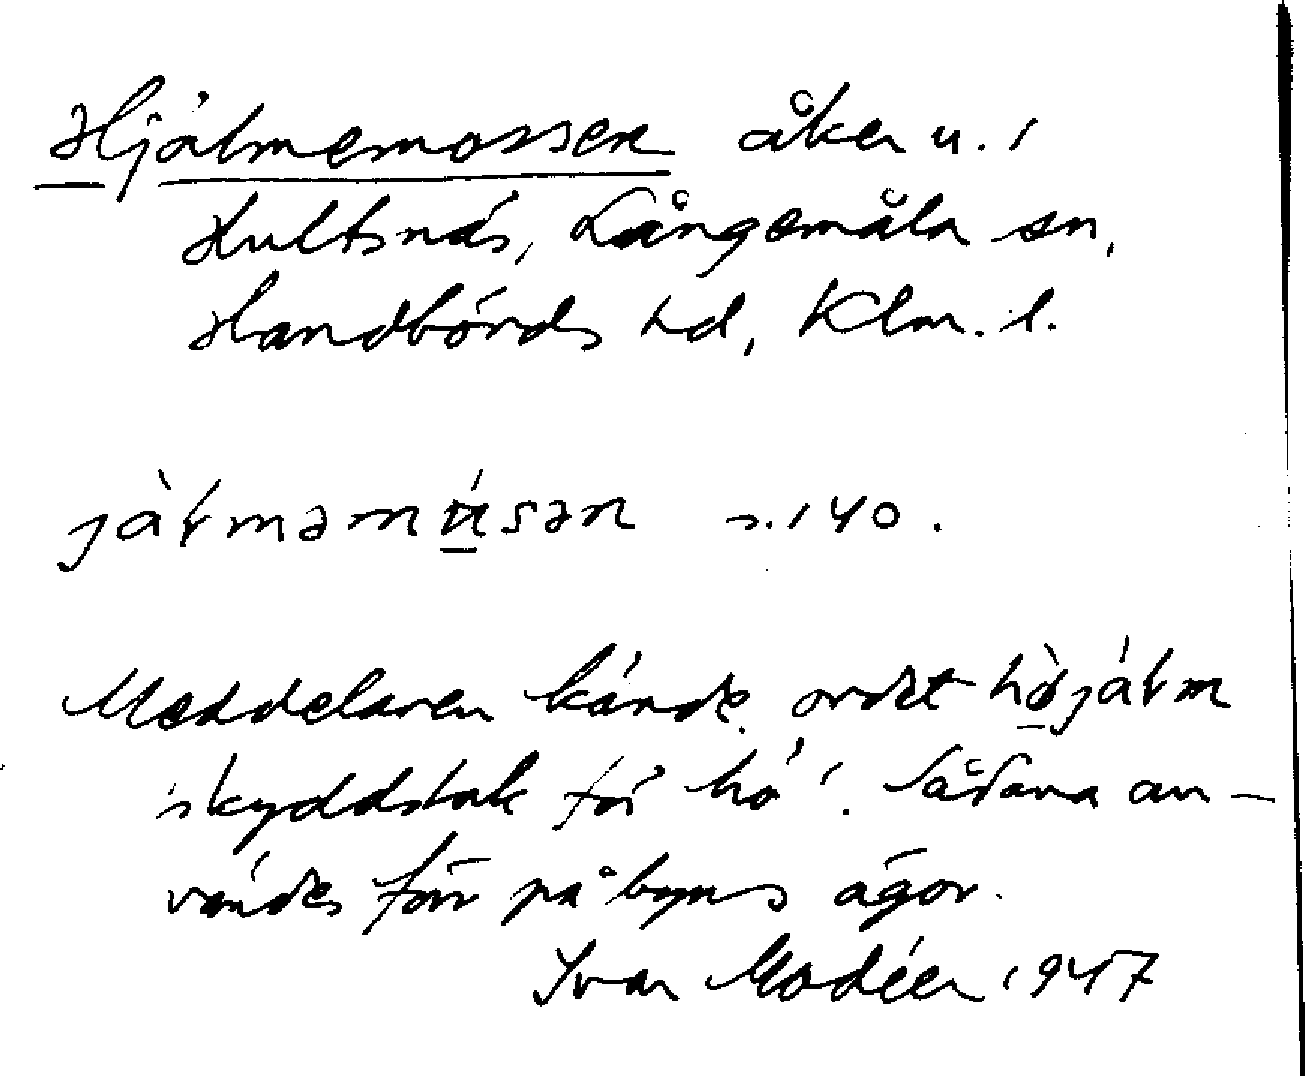 Hjälmemossen åker u. i
Hultsnäs, Långemåla sn,
Handbörds hd, Klm. l.
s. 140.
Meddelaren kände ordet
'skyddstak för hö'. Sådana an-
vändes förr på byns ägor.
Ivar Modéer 1947